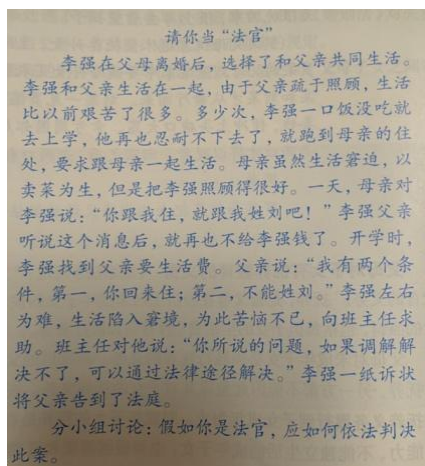 请你当“法官”
李强在父母离婚后，选择了和父亲共同生活。
李强和父亲生活在一起，由于父亲疏于照顾，生活
比以前艰苦了很多。多少次，李强一口饭没吃就
去上学，他再也忍耐不下去了，就跑到母亲的住
处，要求跟母亲一起生活。母亲虽然生活窘迫，以
卖菜为生，但是把李强照顾得很好。一天，母亲对
李强说：“你跟我住，就跟我姓刘吧！”李强父亲
听说这个消息后，就再也不给李强钱了。开学时，
李强找到父亲要生活费。父亲说：“我有两个条
件，第一，你回来住；第二，不能姓刘。”李强左右
为难，生活陷入窘境，为此苦恼不已，向班主任求
助。班主任对他说：“你所说的问题，如果调解解
决不了，可以通过法律途径解决。”李强一纸诉状
将父亲告到了法庭。
分小组讨论：假如你是法官，应如何依法判决
此案。